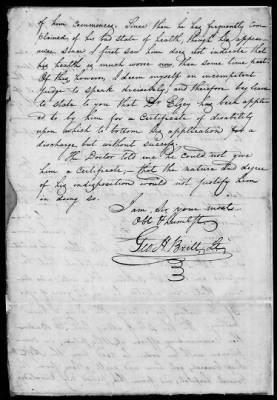 of him commences. Since then he has frequently com
plained of his bad state of health, though his appear
ance since I first saw him does not indicate that
his health is much worse now than some time past.
Of this, however, I deem myself an incompetent
judge to speak decisively, and therefore beg leave
to state to you that Dr Elzey has been appli
ed to by him for a Certificate of disability
upon which to bottom his application for a
discharge but without success.
The Doctor told me he could not give
him a Certificate, that the nature and degree
of his indisposition would not justify him
in doing so.
I am, Sir, your most
Obt &
Geo A Brill, Lt